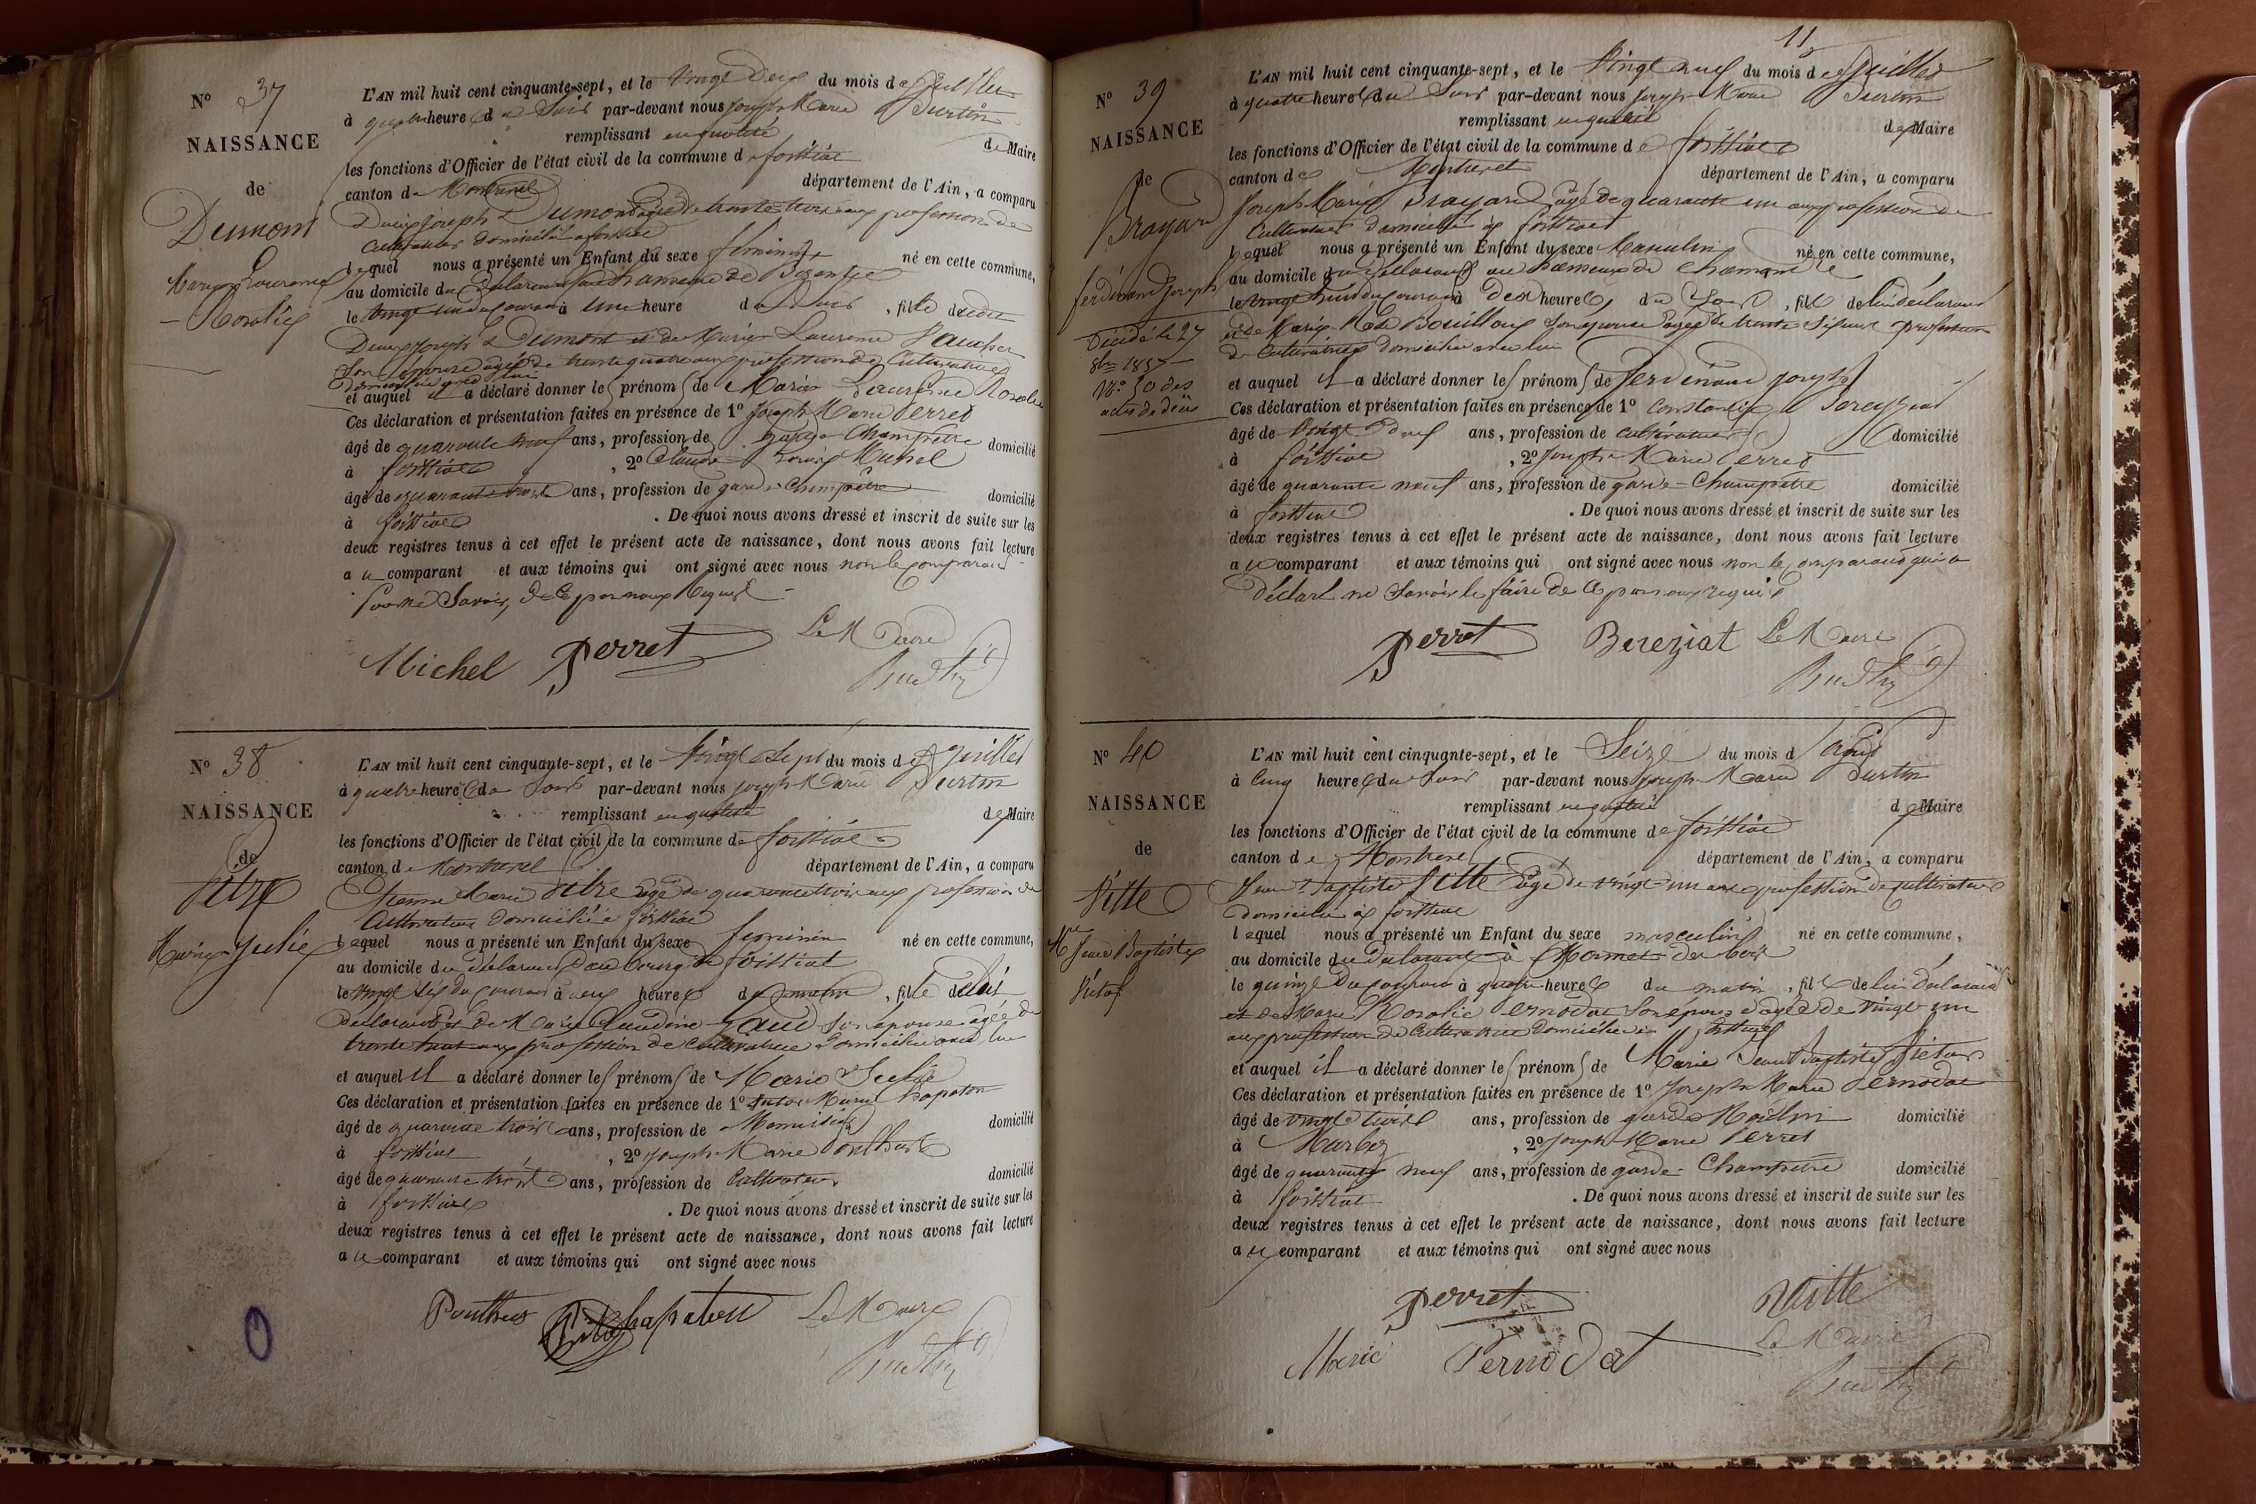 N° 37
NAISSANCE
de
Dumont
Marie Laurence
Rosalie
L'AN mil huit cent cinquante-sept, et le vingt deux du mois de Juillet
à quatre heures du Soir par-devant nous Joseph Marie Burtin
remplissant en qualité de Maire
les fonctions d'Officier de l'état civil de la commune de foissiat
canton de Montrevel département de l'Ain, a comparu
Joseph Dumont âgé de trente trois ans profession de
Cultivateur domicilié à foissiat
lequel nous a présenté un Enfant du sexe féminin né en cette commune,
au domicile du déclarant au hameau de
le vingt un du courant à une heure du soir, fille dudit
Joseph Dumont et de Marie Laurence
Son épouse âgée de trente quatre ans profession de Cultivatrice
domiciliée avec lui
et auquel il a déclaré donner les prénoms de Marie Laurence Rosalie
Ces déclaration et présentation faites en présence de 1° Joseph Marie Perret
âgé de quarante neuf ans, profession de garde Champêtre domicilié
à foissiat, 2° Claude Louis Michel
âgé de quarante ans, profession de garde Champêtre domicilié
à foissiat. De quoi nous avons dressé et inscrit de suite sur les
deux registres tenus à cet effet le présent acte de naissance, dont nous avons fait lecture
au comparant et aux témoins qui ont signé avec nous non le comparant
pour ne Savoir, de ce par nous Requis
Michel Perret Le Maire
Burtin
N° 38
NAISSANCE
de
Marie Julie
L'AN mil huit cent cinquante-sept, et le vingt Sept du mois de Juillet
à quatre heures du Soir par-devant nous Joseph Marie Burtin
remplissant en qualité de Maire
les fonctions d'Officier de l'état civil de la commune de foissiat
canton de Montrevel département de l'Ain, a comparu
Marie âgé de quarante trois ans profession de
Cultivateur domicilié à foissiat
lequel nous a présenté un Enfant du sexe féminin né en cette commune,
au domicile du déclarant au bourg de foissiat
le vingt Six du courant à heures du matin, fille de lui
déclarant et de Marie Claudine Son épouse âgée de
trente huit ans profession de Cultivatrice domiciliée avec lui
et auquel il a déclaré donner les prénoms de Marie Julie
Ces déclaration et présentation faites en présence de 1° Marie Chapaton
âgé de quarante trois ans, profession de Menuisier domicilié
à foissiat, 2° Joseph Marie Ponthus
âgé de quarante trois ans, profession de Cultivateur domicilié
à foissiat. De quoi nous avons dressé et inscrit de suite sur les
deux registres tenus à cet effet le présent acte de naissance, dont nous avons fait lecture
au comparant et aux témoins qui ont signé avec nous
Ponthus Chapaton Le Maire
Burtin
11
N° 39
NAISSANCE
de
Brayard
ferdinand Joseph
Décédé le 27
8bre 1857
N° 50 des
actes de décès
L'AN mil huit cent cinquante-sept, et le vingt neuf du mois de Juillet
à quatre heures du Soir par-devant nous Joseph Marie Burtin
remplissant en qualité de Maire
les fonctions d'Officier de l'état civil de la commune de foissiat
canton de Montrevel département de l'Ain, a comparu
Joseph Marie Brayard âgé de quarante un ans profession de
Cultivateur domicilié à foissiat
lequel nous a présenté un Enfant du sexe Masculin né en cette commune,
au domicile du déclarant au hameau de
le vingt huit du courant à dix heures du Soir, fils de lui déclarant
et de Marie Son épouse âgée de trente Six ans profession
de Cultivatrice domiciliée avec lui
et auquel il a déclaré donner les prénoms de ferdinand Joseph
Ces déclaration et présentation faites en présence de 1° Constantin Bereyziat
âgé de vingt neuf ans, profession de cultivateur domicilié
à foissiat, 2° Joseph Marie Perret
âgé de quarante neuf ans, profession de garde-Champêtre domicilié
à foissiat. De quoi nous avons dressé et inscrit de suite sur les
deux registres tenus à cet effet le présent acte de naissance, dont nous avons fait lecture
au comparant et aux témoins qui ont signé avec nous non le comparant qui a
déclaré ne Savoir le faire de ce par nous requis
Perret Bereziat Le Maire
Burtin
N° 40
NAISSANCE
de
Vitte
Mie Jean Baptiste
Victor
L'AN mil huit cent cinquante-sept, et le Seize du mois d'août
à Cinq heures du Soir par-devant nous Joseph Marie Burtin
remplissant en qualité de Maire
les fonctions d'Officier de l'état civil de la commune de foissiat
canton de Montrevel département de l'Ain, a comparu
Jean Baptiste Vitte âgé de vingt un ans profession de cultivateur
domicilié à foissiat
lequel nous a présenté un Enfant du sexe masculin né en cette commune,
au domicile du déclarant à
le quinze du courant à quatre heures du matin, fils de lui déclarant
et de Marie Rosalie Pernodat Son épouse âgée de vingt un
ans profession de Cultivatrice domiciliée à foissiat
et auquel il a déclaré donner les prénoms de Marie Jean Baptiste Victor
Ces déclaration et présentation faites en présence de 1° Joseph Marie Pernodat
âgé de vingt trois ans, profession de garde Moulin domicilié
à Marboz, 2° Joseph Marie Perret
âgé de quarante neuf ans, profession de garde-Champêtre domicilié
à foissiat. De quoi nous avons dressé et inscrit de suite sur les
deux registres tenus à cet effet le présent acte de naissance, dont nous avons fait lecture
au comparant et aux témoins qui ont signé avec nous
Perret Vitte
Marie Pernodat Le Maire
Burtin